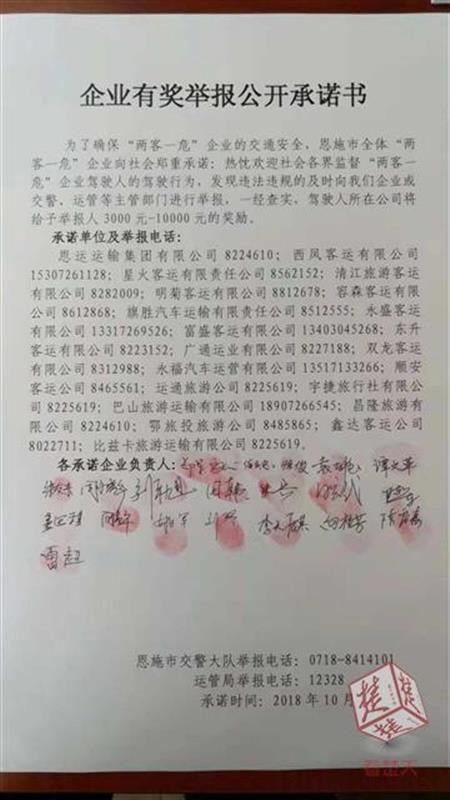 企业有奖举报公开承诺书
为了确保“两客一危”企业的交通安全，恩施市全体“两
客一危”企业向社会郑重承诺：热忱欢迎社会各界监督“两客一
危”企业驾驶人的驾驶行为，发现违法违规的及时向我们企业或
交警、运管等主管部门进行举报，一经查实，驾驶人所在公司将
给予举报人 3000 元-10000 元的奖励。
承诺单位及举报电话：
恩运运输集团有限公司 8224610；西凤客运有限公司
15307261128；星火客运有限责任公司 8562152；清江旅游客运
有限公司 8282009；明菊客运有限公司 8812678；容森客运有限
公司 8612868；旗胜汽车运输有限责任公司 8512555；永盛客运
有限公司 13317269526；富盛客运有限公司 13403045268；东升
客运有限公司 8223152；广通运业有限公司 8227188；双龙客运
有限公司 8312988；永福汽车运营有限公司 13517133266；顺安
客运有限公司 8465561；运通旅游公司 8225619；宇捷旅行社有
限公司 8225619；巴山旅游运输有限公司 18907266545；昌隆旅游有
限公司 8224610；鄂旅投旅游公司 8485865；鑫达客运公司
8022711；比兹卡旅游运输有限公司 8225619。
各承诺企业负责人：
雷超
恩施市交警大队举报电话：0718-8414101
运管局举报电话：12328
承诺时间：2018 年 10 月
看楚天